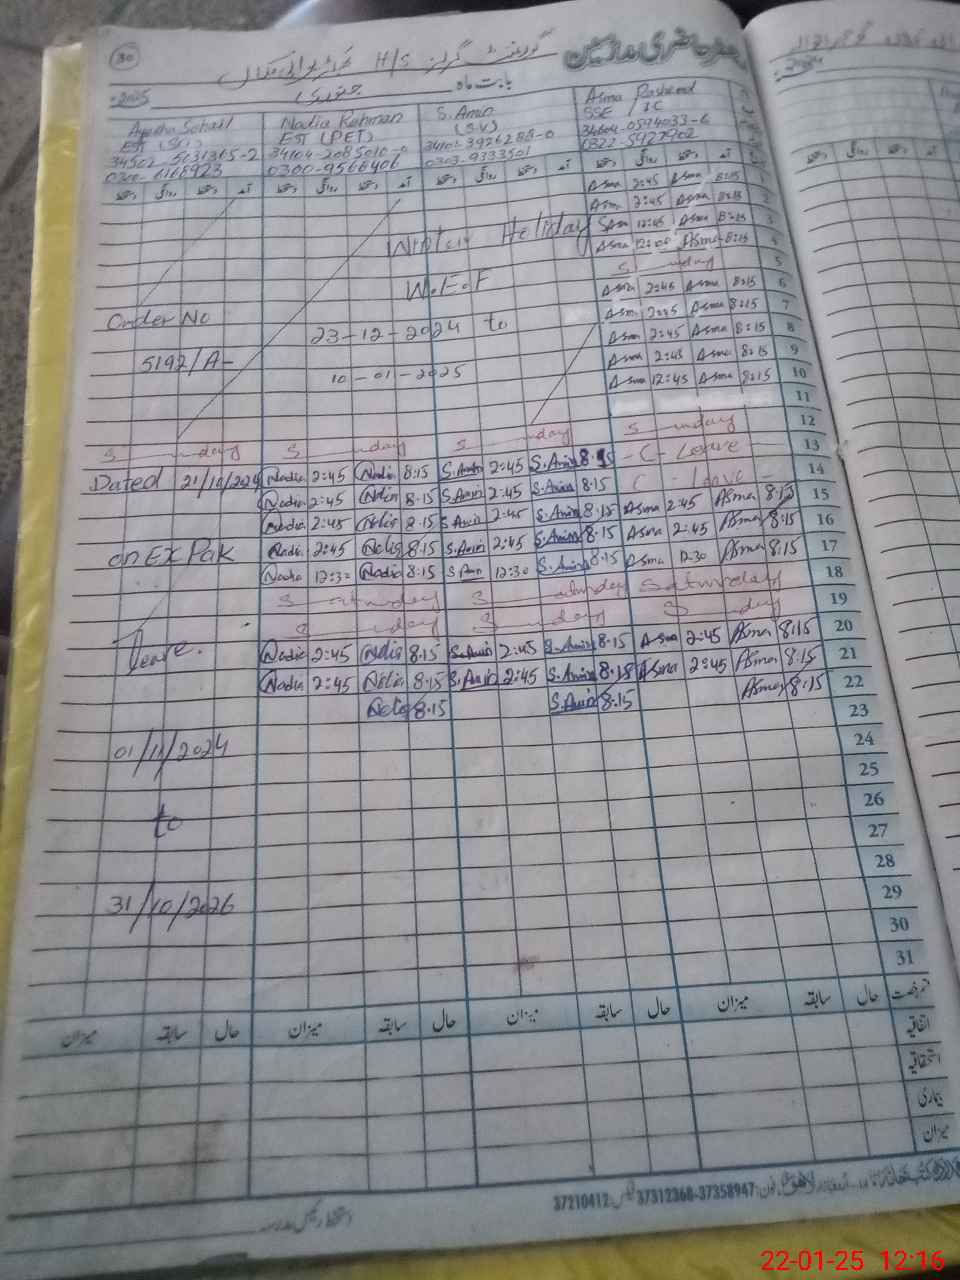 30
رجسٹر حاضری ملازمین
گورنمنٹ گرلز H/S
بابت ماہ جنوری 2025
Asma Rasheed
SSE / IC
0322-5927902
S. Amin
(S.V)
34101-3926288-0
0303-9333501
Nadia Rehman
EST (PET)
34104-2085010-0
0300-9566406
Ayesha Sohail
EST (Sci)
34502-5031365-2
0300-6168923
Asma 2:45 Asma 8:15 1
Asma 2:45 Asma 8:15 2
Winter Holiday Asma 12:45 Asma 8:15 3
Asma 12:00 Asma 8:15 4
W.E.F Sunday 5
Asma 2:45 Asma 8:15 6
Order No 23-12-2024 to Asm 2:45 Asma 8:15 7
Asma 2:45 Asma 8:15 8
5192/A- 10-01-2025 Asma 2:45 Asma 8:15 9
Asma 12:45 Asma 8:15 10
11
Sunday Sunday Sunday Sunday 12
Dated 21/10/2024 Nadia 2:45 Nadia 8:15 S.Amin 2:45 S.Amin 8:15 - C - Leave - 13
Nadia 2:45 Nadia 8:15 S.Amin 2:45 S.Amin 8:15 C - Leave - 14
Nadia 2:45 Nadia 8:15 S.Amin 2:45 S.Amin 8:15 Asma 2:45 Asma 8:15 15
on Ex Pak Nadia 2:45 Nadia 8:15 S.Amin 2:45 S.Amin 8:15 Asma 2:45 Asma 8:15 16
Nadia 12:30 Nadia 8:15 S.Amin 12:30 S.Amin 8:15 Asma 12:30 Asma 8:15 17
Saturday Saturday Saturday 18
Sunday Sunday Sunday 19
leave. Nadia 2:45 Nadia 8:15 S.Amin 2:45 S.Amin 8:15 Asma 2:45 Asma 8:15 20
Nadia 2:45 Nadia 8:15 S.Amin 2:45 S.Amin 8:15 Asma 2:45 Asma 8:15 21
Nadia 8:15 S.Amin 8:15 Asma 8:15 22
23
01/11/2024 24
25
to 26
27
28
31/10/2026 29
30
31
قسم رخصت حال سابقہ میزان حال سابقہ میزان حال سابقہ میزان
اتفاقیہ
استحقاقیہ
بیماری
میزان
37210412 37312368-37358947
22-01-25 12:16